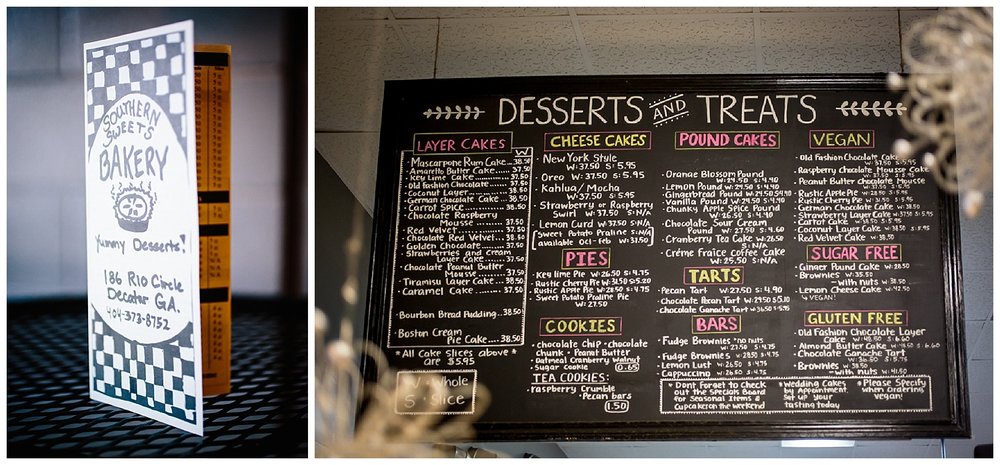 SOUTHERN
SWEETS
BAKERY
Yummy Desserts!
186 Rio Circle
Decatur GA.
404-373-8752
DESSERTS AND TREATS
LAYER CAKES
W
Mascarpone Rum Cake 38.50
Amaretto Butter Cake 37.50
Key Lime Cake 37.50
Old Fashion Chocolate 37.50
Coconut Layer 37.50
German Chocolate Cake 38.50
Carrot Spice 38.50
Chocolate Raspberry
Mousse 37.50
Red Velvet 37.50
Chocolate Red Velvet 38.50
Golden Chocolate 37.50
Strawberries and Cream
Layer Cake 37.50
Chocolate Peanut Butter
Mousse 37.50
Tiramisu Layer Cake 38.50
Caramel Cake 37.50
Bourbon Bread Pudding 38.50
Boston Cream
Pie Cake 38.50
*All Cake Slices above*
are $5.95
Whole
Slice
CHEESE CAKES
New York Style
W: 37.50 S: 5.95
Oreo W: 37.50 S: 5.95
Kahlua/Mocha
W: 37.50 S: 5.95
Strawberry or Raspberry
Swirl W: 37.50 S: N/A
Lemon Curd W: 37.50 S: N/A
Sweet Potato Praline S: N/A
available Oct-Feb W: 37.50
PIES
Key lime Pie W: 26.50 S: 4.75
Rustic Cherry Pie W: 31.50 S: 5.20
Rustic Apple Pie W: 28.50 S: 4.75
Sweet Potato Praline Pie
W: 27.50 S: 4.75
COOKIES
chocolate Chip Chocolate
Chunk Peanut Butter
Oatmeal Cranberry Walnut
Sugar Cookie 0.65
TEA COOKIES:
raspberry Crumble
Pecan bars
1.50
POUND CAKES
Orange Blossom Pound
W: 24.50 S: 4.40
Lemon Pound W: 24.50 S: 4.40
Gingerbread Pound W: 24.50 S: 4.40
Vanilla Pound W: 24.50 S: 4.40
Chunky Apple Spice Pound
W: 26.50 S: 4.40
Chocolate Sour Cream
Pound W: 27.50 S: 4.60
Cranberry Tea Cake W: 26.50
S: N/A
Créme fraice Coffee Cake
W: 25.50 S: N/A
TARTS
Pecan Tart W: 27.50 S: 4.90
Chocolate Pecan Tart W: 29.50 S: 5.10
Chocolate Ganache Tart W: 36.50 S: 5.75
BARS
Fudge Brownies *no nuts
W: 27.50 S: 4.75
Fudge Brownies W: 28.50 S: 4.75
Lemon Lust W: 26.50 S: 4.75
Cappuccino W: 26.50 S: 4.75
*Don't forget to Check
out the Specials Board
for Seasonal Items &
Cupcakes on the weekend
*Wedding Cakes
by Appointment.
Set up your
tasting today
*Please Specify
when Ordering
Vegan!
VEGAN
Old Fashion Chocolate Cake
W: 37.50 S: 5.95
Raspberry Chocolate Mousse Cake
W: 37.50 S: 5.95
Peanut Butter Chocolate Mousse
W: 37.50 S: 5.95
Rustic Apple Pie W: 28.50 S: 4.75
Rustic Cherry Pie W: 31.50 S: 5.20
German Chocolate Cake W: 38.50 S: 5.95
Strawberry Layer Cake W: 37.50 S: 5.95
Carrot Cake W: 38.50 S: 5.95
Coconut Layer Cake W: 37.50 S: 5.95
Red Velvet Cake W: 38.50
SUGAR FREE
Ginger Pound Cake W: 28.50
Brownies W: 35.50
with nuts W: 38.50
Lemon Cheese Cake W: 42.50
VEGAN!
GLUTEN FREE
Old Fashion Chocolate Layer
Cake W: 48.50 S: 6.60
Almond Butter Cake W: 48.50 S: 6.60
Chocolate Ganache Tart
W: 36.50 S: 5.75
Brownies W: 38.50
with nuts W: 41.50